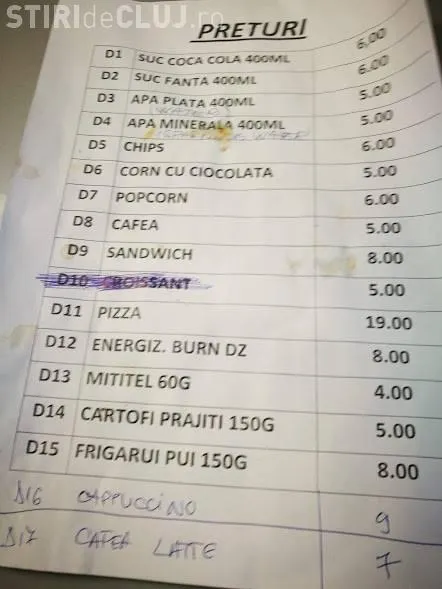 STIRIdeCLUJ.ro
PRETURI
D1 SUC COCA COLA 400ML 6,00
D2 SUC FANTA 400ML 6.00
D3 APA PLATA 400ML 5.00
(WATER)
D4 APA MINERALA 400ML 5.00
(SPARKLING WATER)
D5 CHIPS 6.00
D6 CORN CU CIOCOLATA 5.00
D7 POPCORN 6.00
D8 CAFEA 5.00
D9 SANDWICH 8.00
D10 CROISSANT 5.00
D11 PIZZA 19.00
D12 ENERGIZ. BURN DZ 8.00
D13 MITITEL 60G 4.00
D14 CARTOFI PRAJITI 150G 5.00
D15 FRIGARUI PUI 150G 8.00
D16 CAPPUCCINO 9
D17 CAFEA LATTE 7